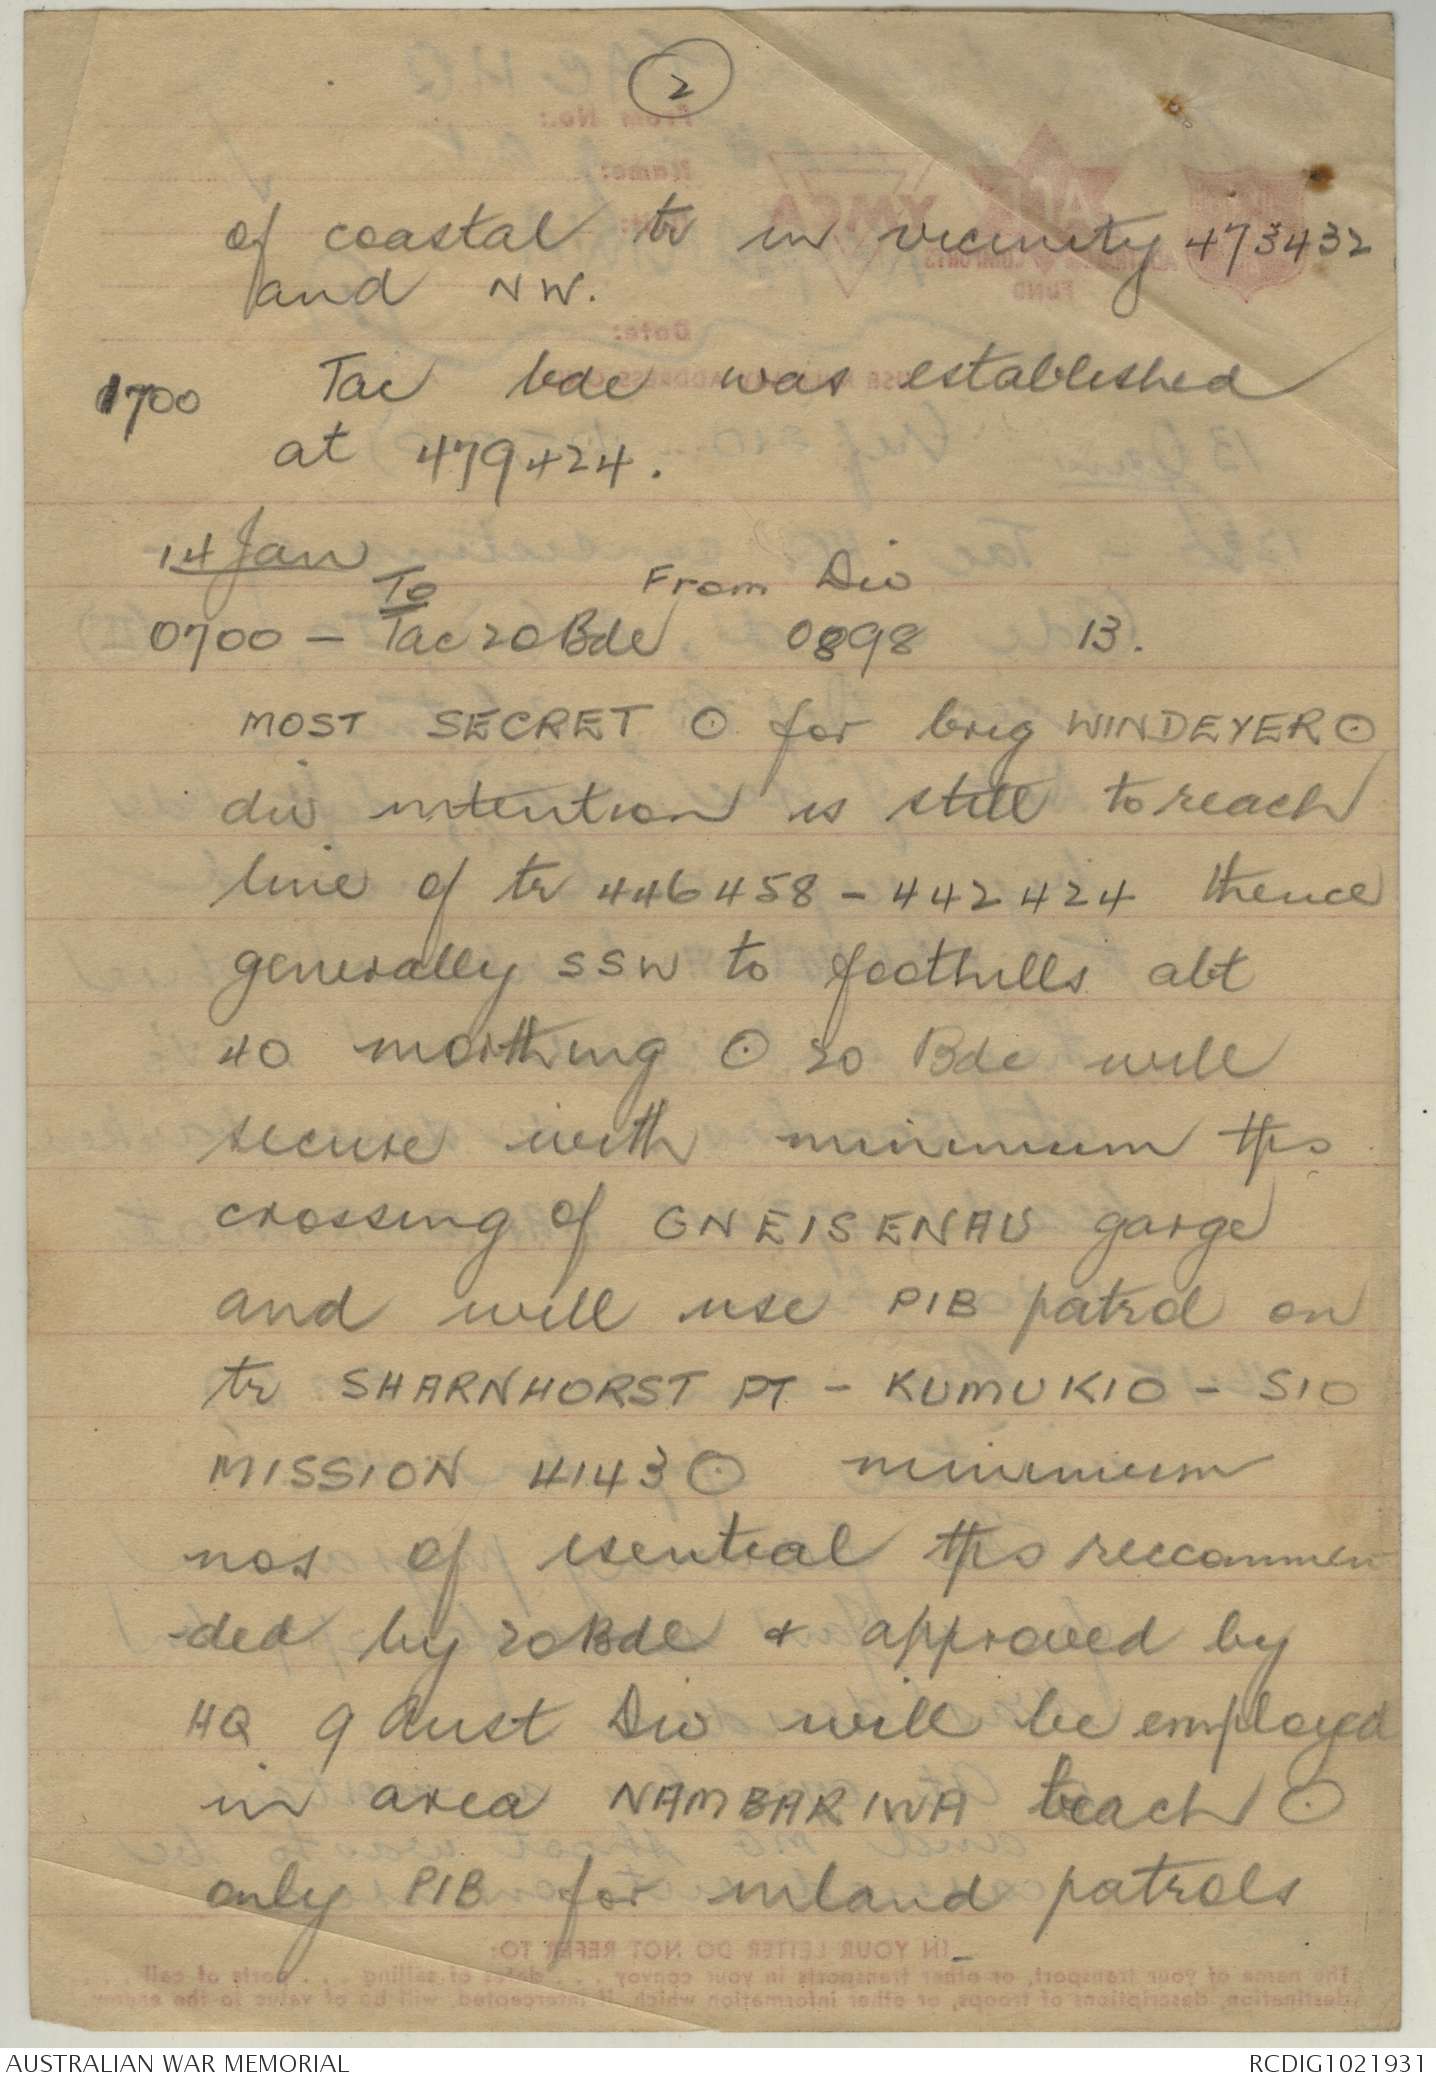 2
of coastal tr in vicinity 473432
and NW.
1700 Tac bde was established
at 479424.
14 Jan
To From Div
0700 - Tac 20 Bde 0898 13.
MOST SECRET ⊙ for brig WINDEYER ⊙
div intention is still to reach
line of tr 446458 - 442424 thence
generally SSW to foothills abt
40 northing ⊙ 20 Bde will
secure with minimum tps
crossing of GNEISENAU gorge
and will use PIB patrol on
tr SHARNHORST PT - KUMUKIO - SIO
MISSION 4143 ⊙ minimum
nos of esential tps reccommen
-ded by 20 Bde & approved by
HQ 9 Aust Div will be employed
in area NAMBARIWA beach ⊙
only PIB for inland patrols
IN YOUR LETTER DO NOT REFER TO:
The name of your transport, or other transports in your convoy . . . dates of sailing . . . ports of call . . . .
destination, descriptions of troops, or other information which, if intercepted, will be of value to the enemy.
AUSTRALIAN WAR MEMORIAL RCDIG1021931